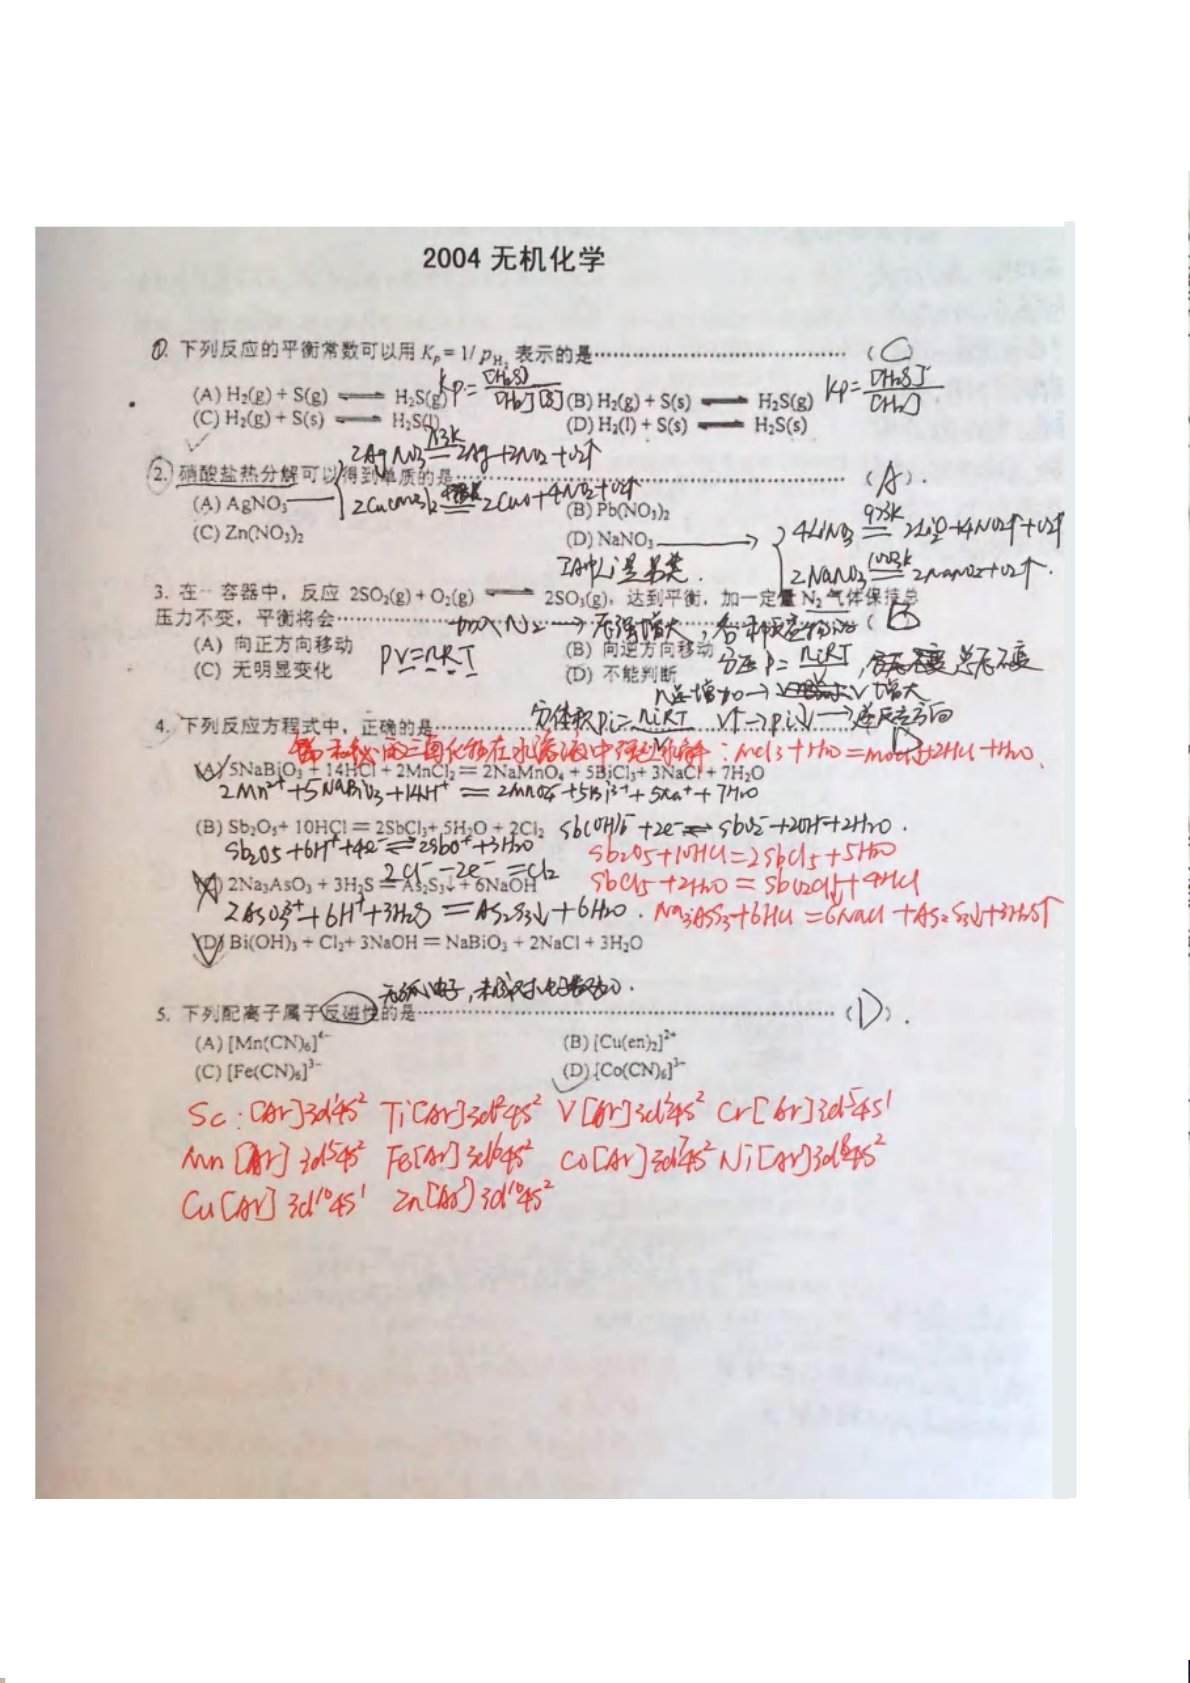 2004 无机化学
1. 下列反应的平衡常数可以用 Kp = 1/ pH₂ 表示的是…………………………( C )
(A) H₂(g) + S(g) ⇌ H₂S(g) Kp = [H₂S]/[H₂][S] (B) H₂(g) + S(s) ⇌ H₂S(g) Kp = [H₂S]/[H₂]
(C) H₂(g) + S(s) ⇌ H₂S(l) (D) H₂(l) + S(s) ⇌ H₂S(s)
2AgNO₃ = 2Ag+2NO₂+O₂↑
2. 硝酸盐热分解可以得到单质的是…………………………( A ).
2Cu(NO₃)₂ = 2CuO+4NO₂+O₂↑
(A) AgNO₃ (B) Pb(NO₃)₂
4LiNO₃ =973K= 2Li₂O+4NO₂↑+O₂↑
(C) Zn(NO₃)₂ (D) NaNO₃
IA中Li是另类. 2NaNO₃ =1003K= 2NaNO₂+O₂↑.
3. 在一容器中，反应 2SO₂(g) + O₂(g) ⇌ 2SO₃(g)，达到平衡，加一定量 N₂ 气体保持总
压力不变，平衡将会…………………………( B
加入N₂→压强增大，各种反应物
(A) 向正方向移动 (B) 向逆方向移动
PV=nRT 分压P=niRT/V, 总压不变
(C) 无明显变化 (D) 不能判断
n总增加→V增大
分体积Pi=niRT/V V↑→Pi↓→逆反应方向
4. 下列反应方程式中，正确的是…………………………D
锑和铋的三卤化物在水溶液中强烈水解：MCl₃+H₂O=MOCl↓+2HCl+H₂O.
(A) 5NaBiO₃ + 14HCl + 2MnCl₂ = 2NaMnO₄ + 5BiCl₃ + 3NaCl + 7H₂O
2Mn²⁺+5NaBiO₃+14H⁺ = 2MnO₄⁻+5Bi³⁺+5Na⁺+7H₂O
(B) Sb₂O₅ + 10HCl = 2SbCl₃ + 5H₂O + 2Cl₂ Sb(OH)₆⁻+2e⁻⇌SbO₂⁻+2OH⁻+2H₂O.
Sb₂O₅+6H⁺+4e⁻⇌2SbO⁺+3H₂O Sb₂O₅+10HCl=2SbCl₅+5H₂O
2Cl⁻-2e⁻=Cl₂
(C) 2Na₃AsO₃ + 3H₂S = As₂S₃↓ + 6NaOH SbCl₅+2H₂O=SbO₂Cl↓+4HCl
2AsO₃³⁻+6H⁺+3H₂S = As₂S₃↓+6H₂O. Na₃AsS₃+6HCl=6NaCl+As₂S₃↓+3H₂S↑
(D) Bi(OH)₃ + Cl₂ + 3NaOH = NaBiO₃ + 2NaCl + 3H₂O
无孤电子，未成对电子数为0.
5. 下列配离子属于反磁性的是…………………………( D ).
(A) [Mn(CN)₆]⁴⁻ (B) [Cu(en)₂]²⁺
(C) [Fe(CN)₆]³⁻ (D) [Co(CN)₆]³⁻
Sc:[Ar]3d¹4s² Ti[Ar]3d²4s² V[Ar]3d³4s² Cr[Ar]3d⁵4s¹
Mn[Ar]3d⁵4s² Fe[Ar]3d⁶4s² Co[Ar]3d⁷4s² Ni[Ar]3d⁸4s²
Cu[Ar]3d¹⁰4s¹ Zn[Ar]3d¹⁰4s²